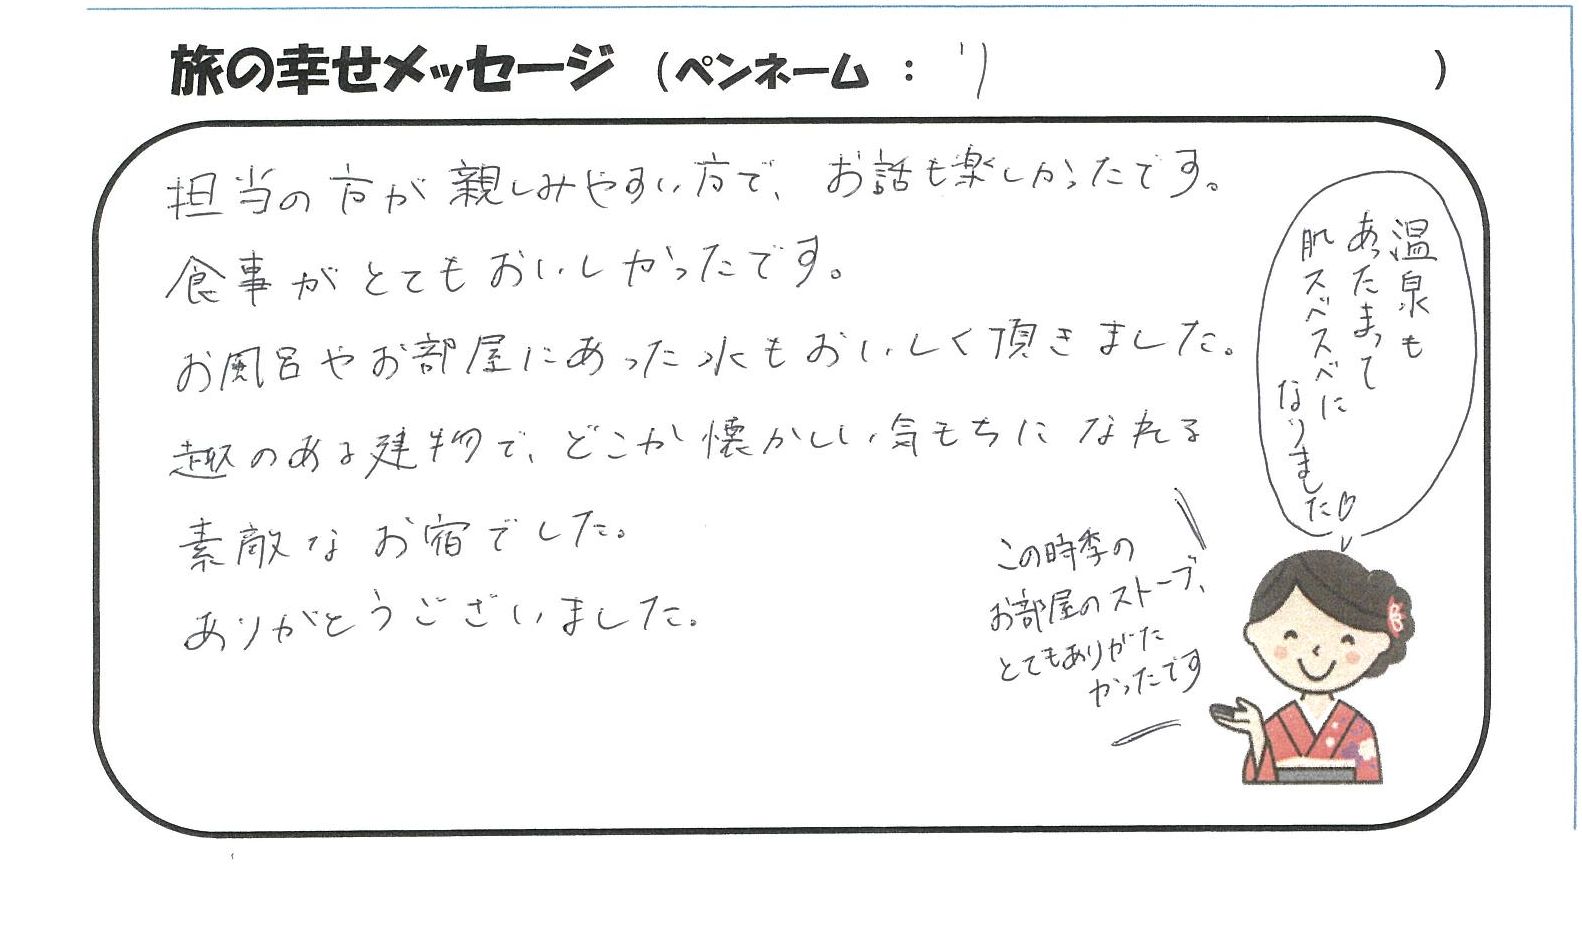 旅の幸せメッセージ (ペンネーム : リ )
担当の方が親しみやすい方で、お話も楽しかったです。
食事がとてもおいしかったです。
お風呂やお部屋にあった水もおいしく頂きました。
趣のある建物で、どこか懐かしい気もちになれる
素敵なお宿でした。
ありがとうございました。
温泉も
あったまって
肌スベスベに
なりました♡
この時季の
お部屋のストーブ、
とてもありがた
かったです